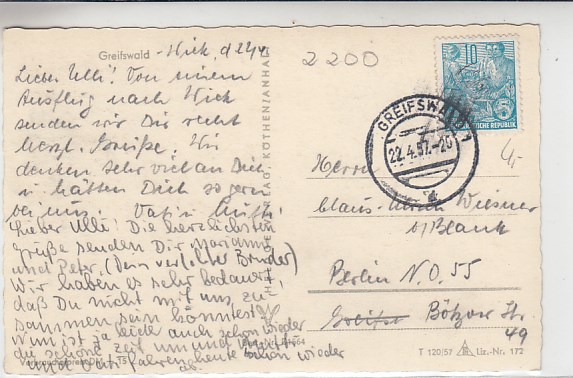 Greifswald - Wiek, d 22.4.
Lieber Ulli! Von einem
Ausflug nach Wiek
senden wir Dir recht
herzl. Grüße. Wir
denken sehr viel an Dich
u. hätten Dich so gern
bei uns. Vati u. Mutti.
Lieber Ulli! Die herzlichsten
Grüße senden Dir Marianne
und Peter, (Dein verlobter Bruder)
Wir haben es sehr bedauert,
daß Du nicht mit uns zu
sammen sein konntest.
Nun ist ja leider auch schon wieder
die schöne Zeit um und
und fahren heute schon wieder
ab.
Verbraucherpreis DM
KÖTHEN/ANHALT
2200
10
5
DEUTSCHE REPUBLIK
GREIFSWALD 1
22.4.57.-20
d
4,-
Herrn
Claus-Ulrich Wiesner
b/Blank
Berlin N.O. 55
Greifsw Bötzow Str.
49
T 120/57 Liz.-Nr. 172